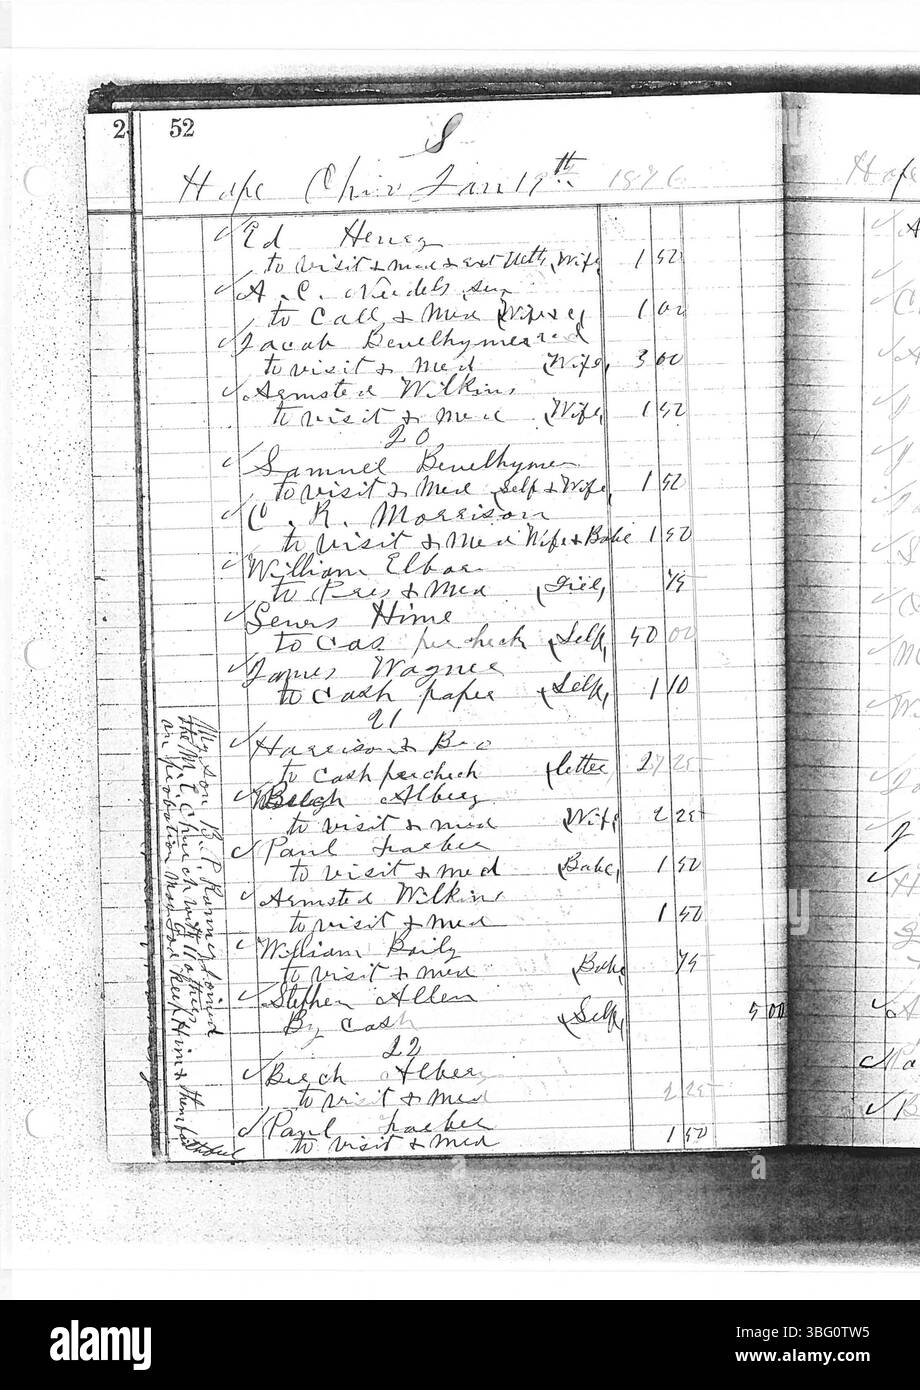 2
52
S
Hope Ohio Jan 19th 1876
Hope
Ed Henry
to visit & med & ext Wife 1 50
A. C.
to Call & Med Wife 1 00
Jacob Benelhymer
to visit & med Wife 3 00
Armsted Wilkins
to visit & med Wife 1 50
20
Samuel Benelhymer
to visit & Med Self & Wife 1 50
C. R. Morrison
to visit & Med Wife & Babe 1 50
William
to Pres & Med Girl 75
Hime
to Cas per check Self 50 00
James Wagner
to Cash paper Self 1 10
21
Harrison & Bro
to cash per check letter 27 25
Balzh Albery
to visit & med Wife 2 25
Paul
to visit & med Babe 1 50
Armsted Wilkins
to visit & med 1 50
William Baily
to visit & med Babe 75
Stephen Allen
By cash Self 5 00
22
Albery
to visit & med 2 25
Paul
to visit & med 1 50
My son B. P. Ranney Joined
the M. E. Church with 11 others
on probation May God Keep Him & them faithful
a
alamy
alamy
Image ID: 3BG0TW5
www.alamy.com